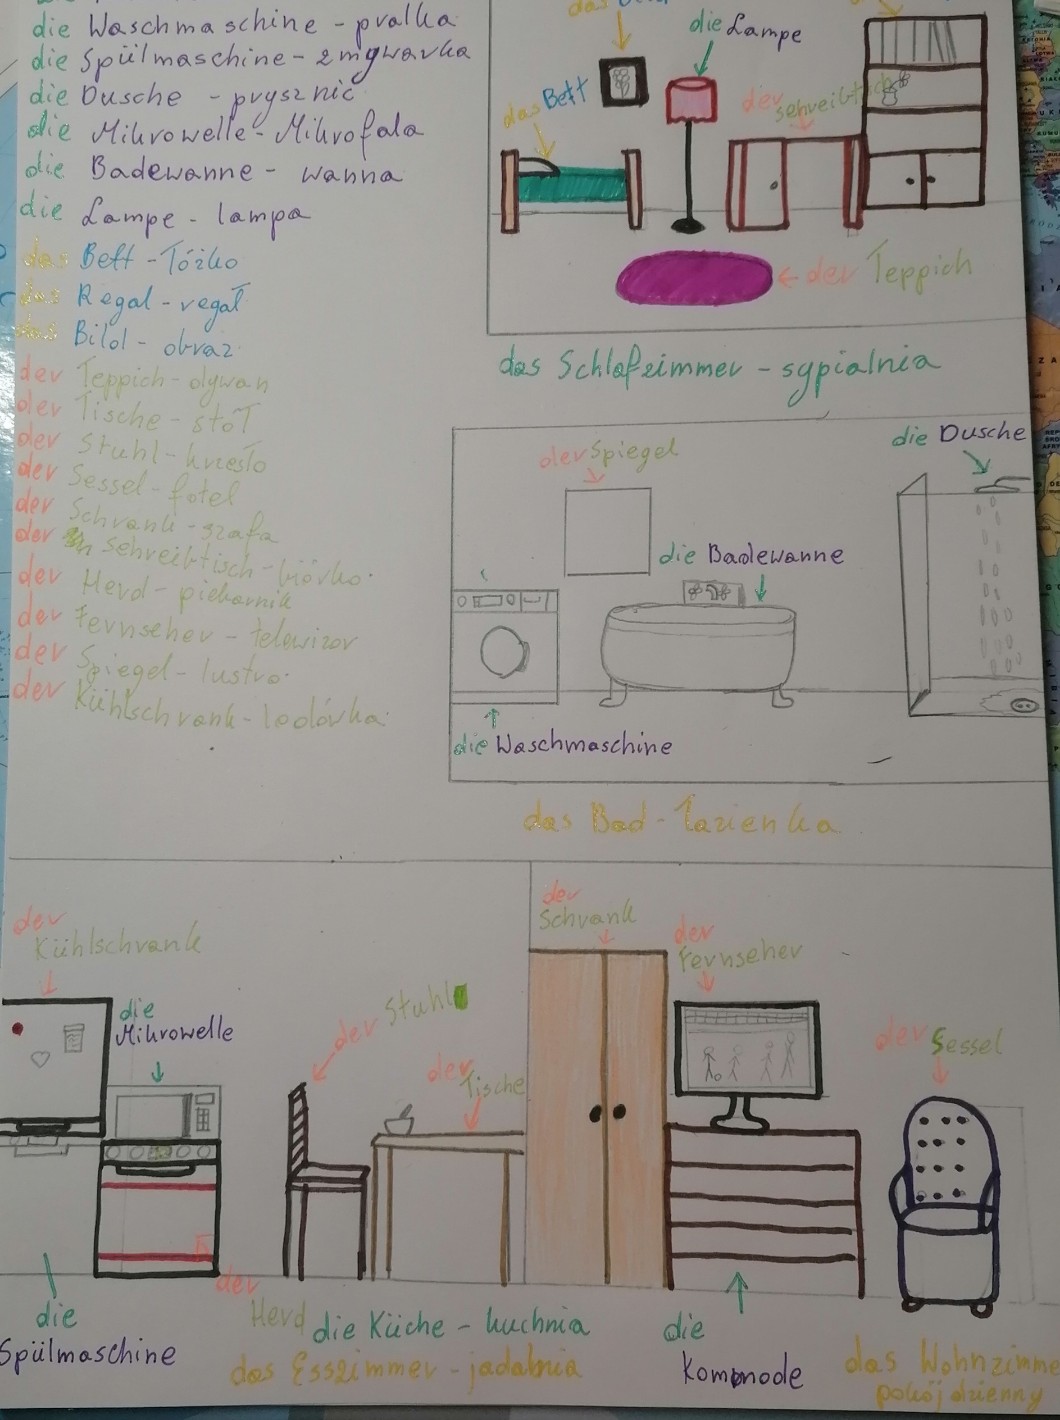 die Waschmaschine - pralka
die Spülmaschine - zmywarka
die Dusche - prysznic
die Mikrowelle - Mikrofala
die Badewanne - wanna
die Lampe - lampa
das Bett - łóżko
das Regal - regał
das Bild - obraz
der Teppich - dywan
der Tische - stół
der Stuhl - krzesło
der Sessel - fotel
der Schrank - szafa
der schreibtisch - biórko
der Herd - piekarnik
der Fernseher - telewizor
der Spiegel - lustro
der Kühlschrank - lodówka
das
die Lampe
das Bett
der schreibtisch
der Teppich
das Schlafzimmer - sypialnia
der Spiegel
die Dusche
die Badewanne
die Waschmaschine
das Bad - łazienka
der
Kühlschrank
die
Mikrowelle
der Stuhl
der
Tische
der
Schrank
der
Fernseher
der Sessel
der
Herd
die
Spülmaschine
die Küche - kuchnia
das Esszimmer - jadalnia
die
Komonode
das Wohnzimme
pokój dzienny